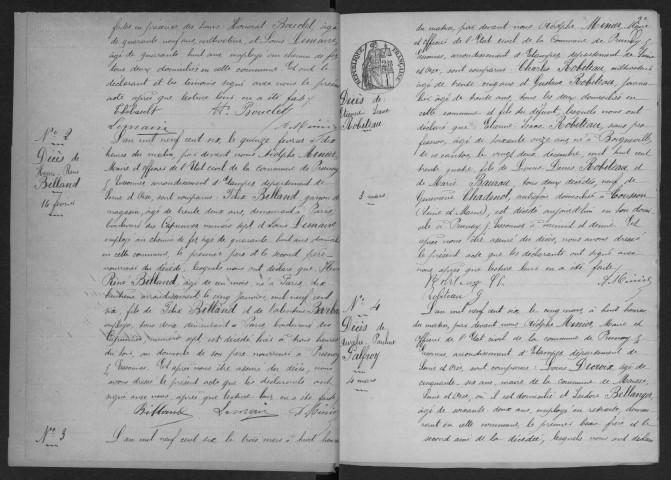 faite en présence des sieurs Honorat Boudet, âgé
de quarante neuf ans, instituteur, et Louis Lemaire,
âgé de quarante huit ans employé au chemin de fer,
tous deux domiciliés en cette commune. Et ont le
déclarant et les témoins signé avec nous le présent
acte après que lecture leur en a été faite.
Thibault H. Boudet
Lemaire A. Minier
N° 2
Décès de
René
Billand
14 février
L'an mil neuf cent six, le quinze février à dix
heures du matin, par devant nous Adolphe Minier,
Maire et officier de l'Etat civil de la commune de Prunay
s/ Essonnes, arrondissement d'Etampes département de
Seine et Oise, sont comparus Félix Billand, garçon de
magasin, âgé de trente deux ans, demeurant à Paris,
boulevard des Capucines numéro sept et Louis Lemaire
employé au chemin de fer, âgé de quarante huit ans domicilié
en cette commune, le premier père et le second père
nourricier du décédé, lesquels nous ont déclaré que
René Billand, âgé de un mois, né à Paris, dix
huitième arrondissement le cinq janvier mil neuf cent
six, fils de Félix Billand et de Valentine
employée, tous deux demeurant à Paris, boulevard des
Capucines numéro sept est décédé hier à trois heures
du soir, au domicile de son père nourricier à Prunay
s/ Essonnes. Et après nous être assuré du décès, nous
avons dressé le présent acte que les déclarants ont
signé avec nous, après que lecture leur en a été faite.
Billand Lemaire A. Minier
N° 3
L'an mil neuf cent six le trois mars à huit heures
2
RÉPUBLIQUE FRANÇAISE
Décès de
Etienne Isaac
Robiteau
3 mars
du matin, par devant nous Adolphe Minier, Maire
et officier de l'Etat civil de la Commune de Prunay s/
Essonnes, arrondissement d'Etampes, département de Seine
et Oise, sont comparus Charles Robiteau,
âgé de trente cinq ans et Gustave Robiteau,
âgé de trente ans, tous les deux domiciliés en
cette commune et fils du défunt, lesquels nous ont
déclaré que Etienne Isaac Robiteau, sans pro
fession, âgé de soixante onze ans né à Boigneville
le vingt deux décembre mil huit cent
trente quatre, fils de Louis Robiteau et
de Marie tous deux décédés, veuf de
Geneviève domicilié à
(Seine et Marne), est décédé aujourd'hui en son domi
cile à Prunay s/ Essonnes à minuit et demi. Et
après nous être assuré du décès, nous avons dressé
le présent acte que les déclarants ont signé
avec nous après que lecture leur en a été faite.
A. Minier
N° 4
Décès de
Pauline
Galfroy
4 mars
L'an mil neuf cent six, le cinq mars, à huit heures
du matin, par devant nous Adolphe Minier, Maire et
officier de l'Etat civil de la commune de Prunay s/
Essonnes, arrondissement d'Etampes département de
Seine et Oise, sont comparus Louis Devoix âgé de
cinquante six ans, maire de la commune de
Seine et Oise, où il est domicilié et Isidore Bellanger,
âgé de soixante deux ans, employé en retraite, demeu
rant en cette commune, le premier beau frère et le
second ami de la décédée, lesquels nous ont déclaré